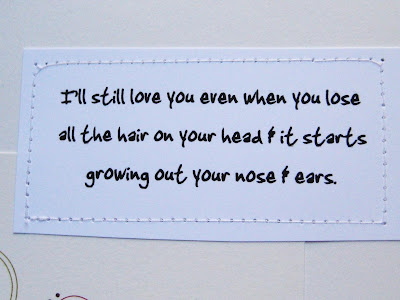 I'll still love you even when you lose
all the hair on your head & it starts
growing out your nose & ears.